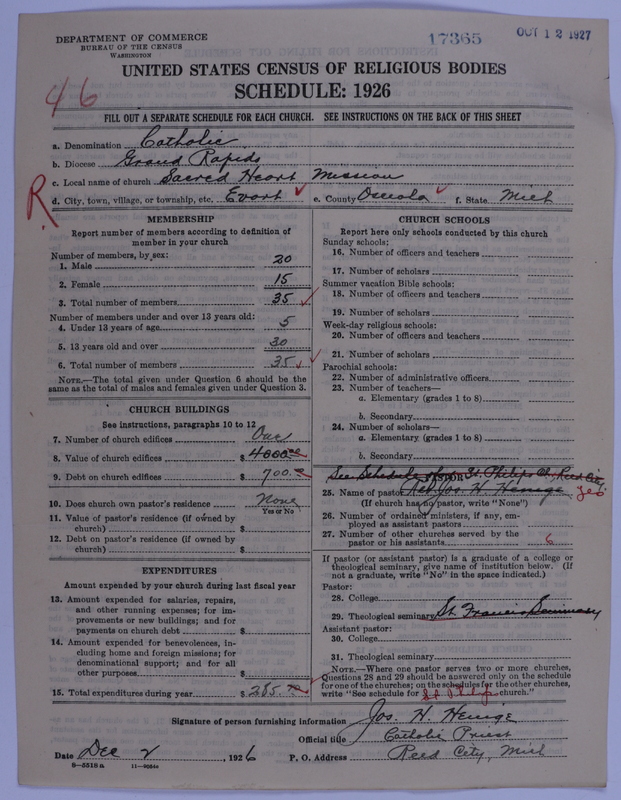 DEPARTMENT OF COMMERCE
BUREAU OF THE CENSUS
WASHINGTON
17365
OCT 12 1927
UNITED STATES CENSUS OF RELIGIOUS BODIES
SCHEDULE: 1926
46
FILL OUT A SEPARATE SCHEDULE FOR EACH CHURCH. SEE INSTRUCTIONS ON THE BACK OF THIS SHEET
a. Denomination Catholic
b. Diocese Grand Rapids
c. Local name of church Sacred Heart Mission
R
d. City, town, village, or township, etc. Evart e. County Osceola f. State Mich
MEMBERSHIP
Report number of members according to definition of
member in your church
Number of members, by sex:
1. Male 20
2. Female 15
3. Total number of members 35
Number of members under and over 13 years old:
4. Under 13 years of age 5
5. 13 years old and over 30
6. Total number of members 35
NOTE.—The total given under Question 6 should be the
same as the total of males and females given under Question 3.
CHURCH BUILDINGS
See instructions, paragraphs 10 to 12
7. Number of church edifices One
8. Value of church edifices $ 4000.00
9. Debt on church edifices $ 700.00
10. Does church own pastor's residence None
Yes or No
11. Value of pastor's residence (if owned by
church) $
12. Debt on pastor's residence (if owned by
church) $
EXPENDITURES
Amount expended by your church during last fiscal year
13. Amount expended for salaries, repairs,
and other running expenses; for im-
provements or new buildings; and for
payments on church debt $
14. Amount expended for benevolences, in-
cluding home and foreign missions; for
denominational support; and for all
other purposes $
15. Total expenditures during year $ 285.00
CHURCH SCHOOLS
Report here only schools conducted by this church
Sunday schools:
16. Number of officers and teachers
17. Number of scholars
Summer vacation Bible schools:
18. Number of officers and teachers
19. Number of scholars
Week-day religious schools:
20. Number of officers and teachers
21. Number of scholars
Parochial schools:
22. Number of administrative officers
23. Number of teachers—
a. Elementary (grades 1 to 8)
b. Secondary
24. Number of scholars—
a. Elementary (grades 1 to 8)
b. Secondary
See Schedule of St. Philips Ch, Reed City
PASTOR
25. Name of pastor Rev. Jos. H. Henige yes
(If church has no pastor, write "None")
26. Number of ordained ministers, if any, em-
ployed as assistant pastors
27. Number of other churches served by the
pastor or his assistants 6
If pastor (or assistant pastor) is a graduate of a college or
theological seminary, give name of institution below. (If
not a graduate, write "No" in the space indicated.)
Pastor:
28. College
29. Theological seminary St. Francis Seminary
Assistant pastor:
30. College
31. Theological seminary
NOTE.—Where one pastor serves two or more churches,
Questions 28 and 29 should be answered only on the schedule
for one of the churches; on the schedules for the other churches,
write "See schedule for St Philips church."
Signature of person furnishing information Jos. H. Henige
Official title Catholic Priest
Date Dec 2, 1926 P. O. Address Reed City, Mich
8—5518 a